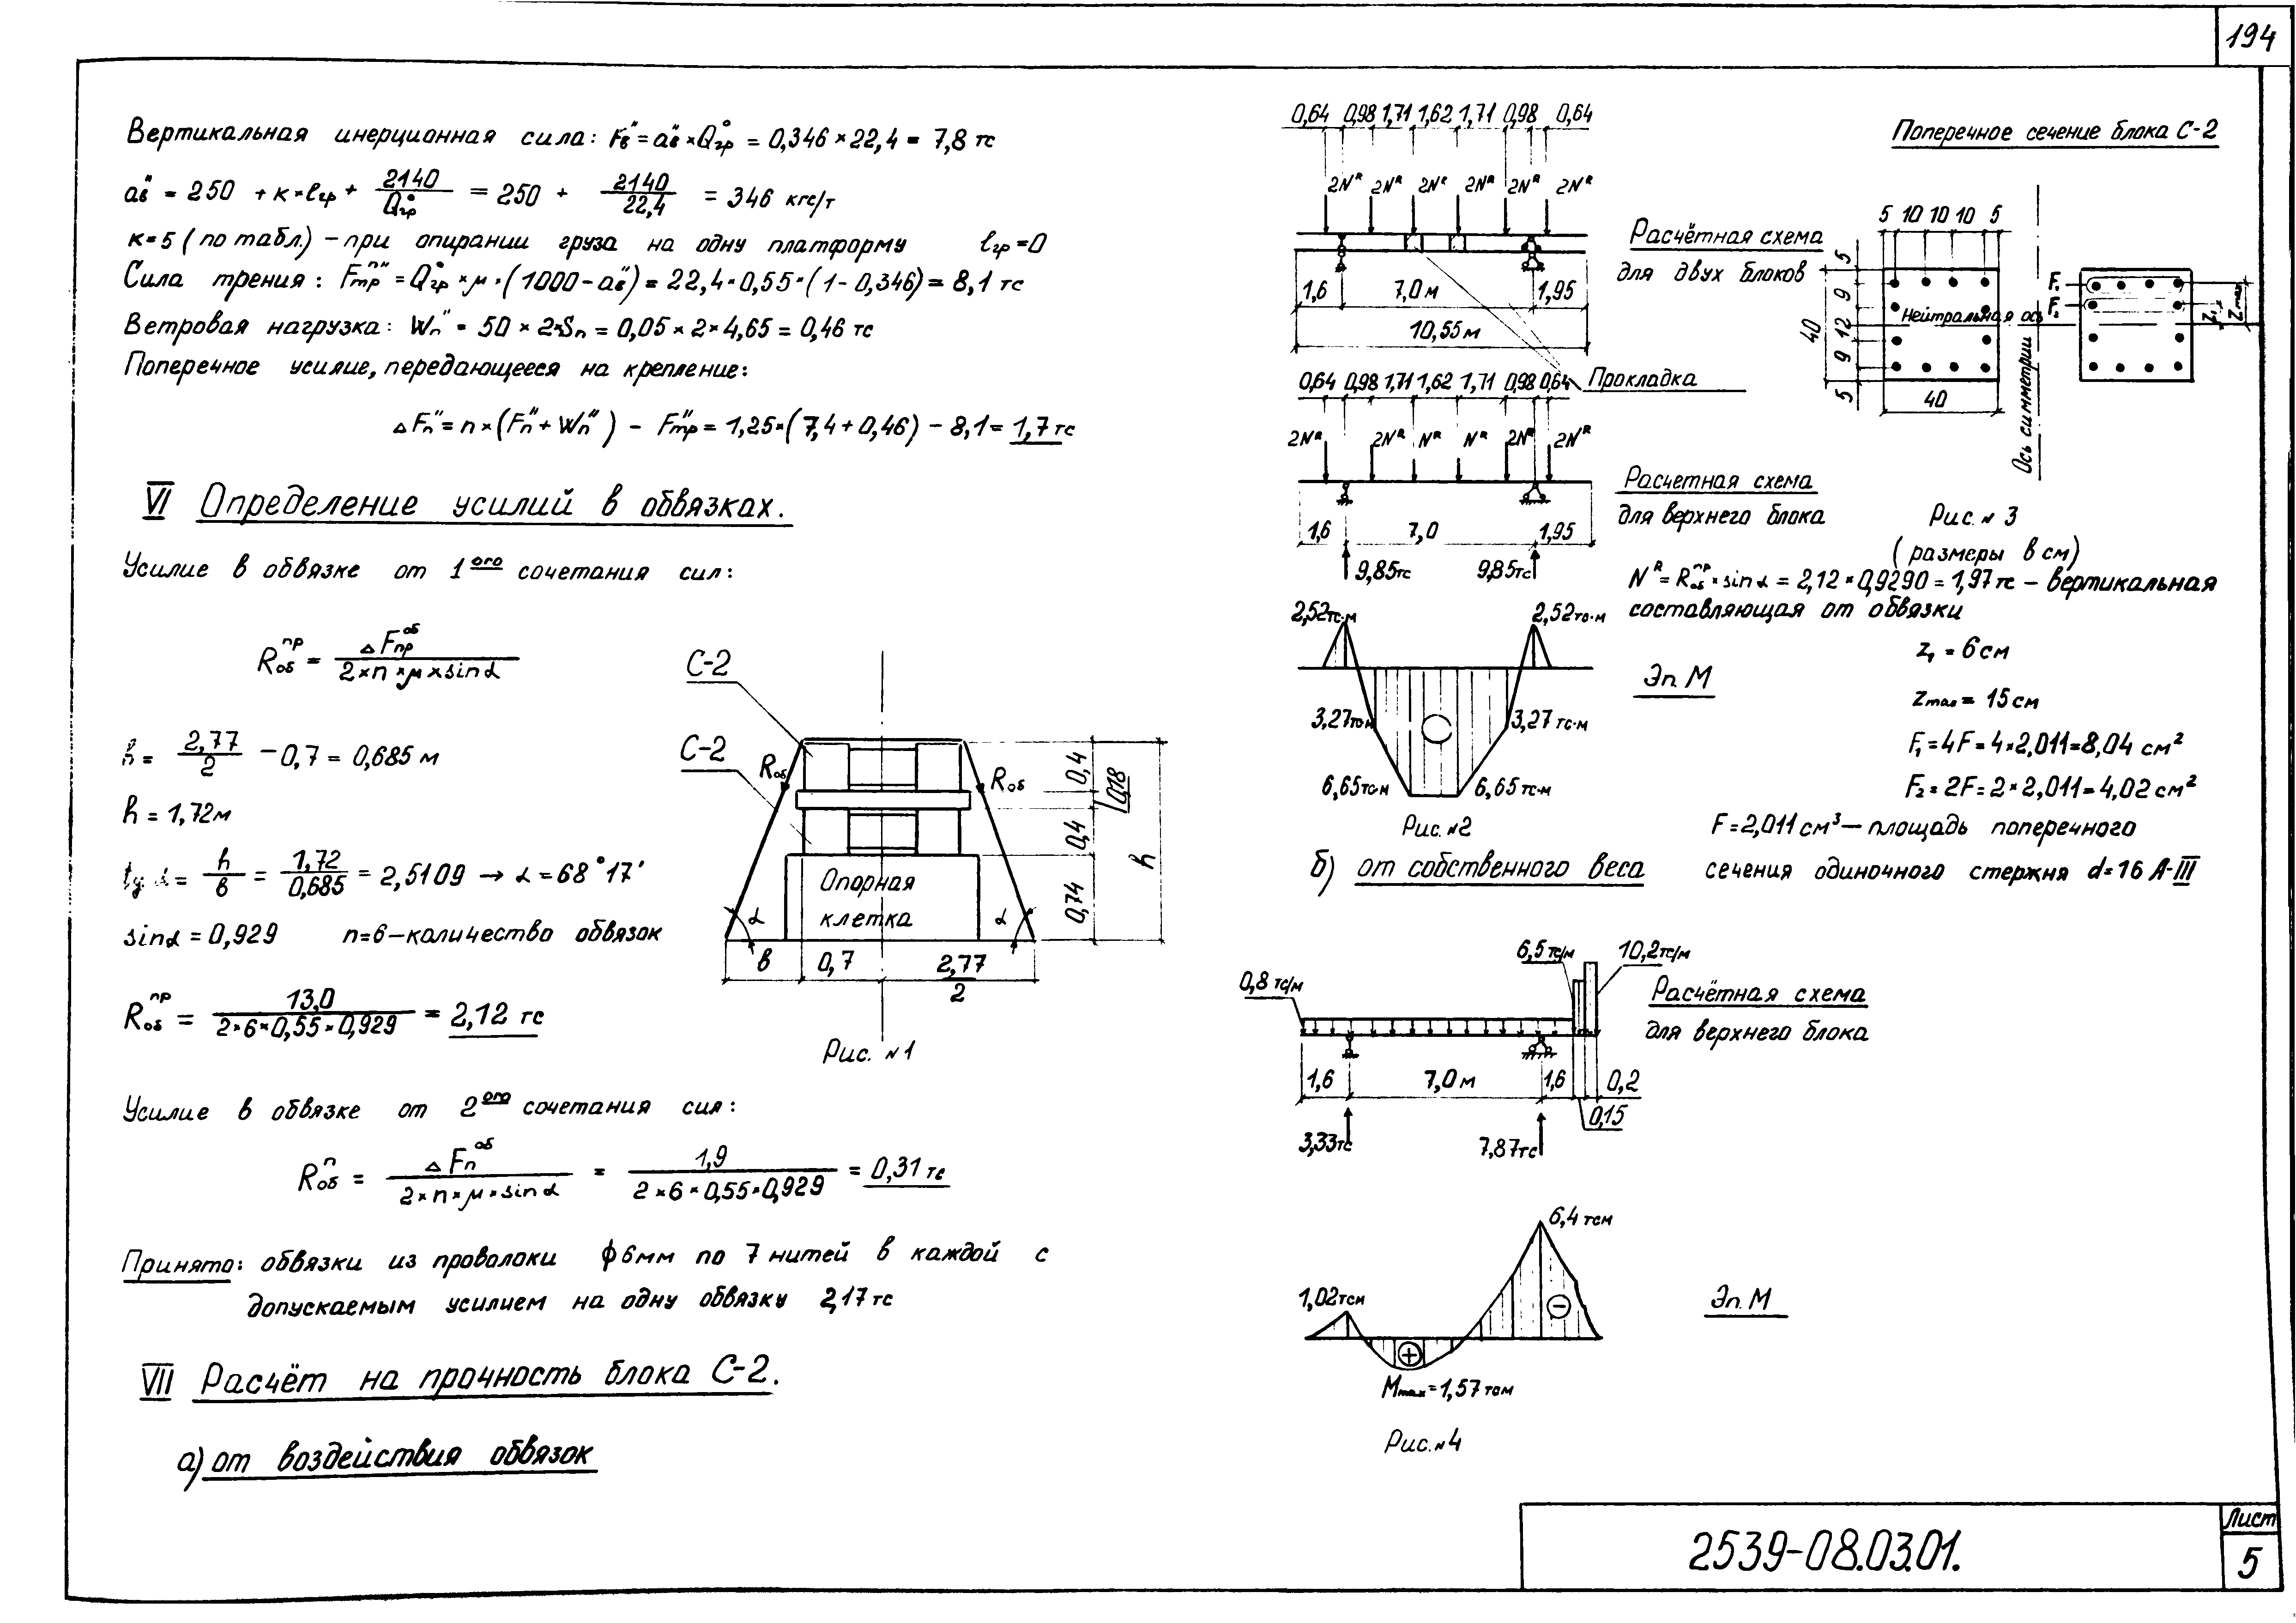 194
Вертикальная инерционная сила: Fв" = aв" × Q°гр = 0,346 × 22,4 = 7,8 тс
aв" = 250 + к × lгр + 2140/Q°гр = 250 + 2140/22,4 = 346 кгс/т
к=5 (по табл.) – при опирании груза на одну платформу lгр=0
Сила трения: Fтр^п" = Q°гр × μ × (1000 – aв") = 22,4 × 0,55 × (1 – 0,346) = 8,1 тс
Ветровая нагрузка: Wп" = 50 × 2 × Sп = 0,05 × 2 × 4,65 = 0,46 тс
Поперечное усилие, передающееся на крепление:
ΔFп" = n × (Fп" + Wп") – Fтр" = 1,25 × (7,4 + 0,46) – 8,1 = 1,7 тс
VI Определение усилий в обвязках.
Усилие в обвязке от 1ого сочетания сил:
Rоб^пр = ΔFпр^об / 2×n×μ×sinα
в = 2,77/2 – 0,7 = 0,685 м
h = 1,72м
tg α = h/в = 1,72/0,685 = 2,5109 → α = 68°17'
sinα = 0,929 n=6 – количество обвязок
Rоб^пр = 13,0 / 2×6×0,55×0,929 = 2,12 тс
С-2
С-2
Rоб
Rоб
Опорная
клетка
α
α
в
0,7
2,77/2
0,4
0,18
0,4
0,74
h
Рис. №1
Усилие в обвязке от 2ого сочетания сил:
Rоб^п = ΔFп^об / 2×n×μ×sinα = 1,9 / 2×6×0,55×0,929 = 0,31 тс
Принято: обвязки из проволоки ф6мм по 7 нитей в каждой с
допускаемым усилием на одну обвязку 2,17 тс
VII Расчёт на прочность блока С-2.
а) от воздействия обвязок
0,64 0,98 1,71 1,62 1,71 0,98 0,64
2Nᴿ 2Nᴿ 2Nᴿ 2Nᴿ 2Nᴿ 2Nᴿ
Расчётная схема
для двух блоков
1,6 7,0м 1,95
10,55м
Прокладка
0,64 0,98 1,71 1,62 1,71 0,98 0,64
2Nᴿ 2Nᴿ Nᴿ Nᴿ 2Nᴿ 2Nᴿ
Расчетная схема
для верхнего блока
1,6 7,0 1,95
9,85тс 9,85тс
2,52тс·м 2,52тс·м
3,27тс·м 3,27 тс·м
6,65тс·м 6,65 тс·м
Эп. М
Рис. №2
Поперечное сечение блока С-2
5 10 10 10 5
5
9
12
9
5
40
40
Нейтральная ось
Ось симметрии
F₁
F₂
Z₁
Zmax
Рис. № 3
(размеры в см)
Nᴿ = Rоб^пр × sinα = 2,12 × 0,9290 = 1,97 тс – вертикальная
составляющая от обвязки
z₁ = 6см
zmax = 15см
F₁ = 4F = 4×2,011 = 8,04 см²
F₂ = 2F = 2×2,011 = 4,02 см²
F = 2,011 см³ – площадь поперечного
сечения одиночного стержня d=16 А-III
б) от собственного веса
0,8 тс/м
6,5тс/м
10,2тс/м
Расчётная схема
для верхнего блока
1,6 7,0м 1,6 0,2
0,15
3,33тс 7,87тс
1,02тсм
6,4 тсм
Мmax = 1,57тсм
Эп. М
Рис. №4
2539-08.03.01.
Лист
5